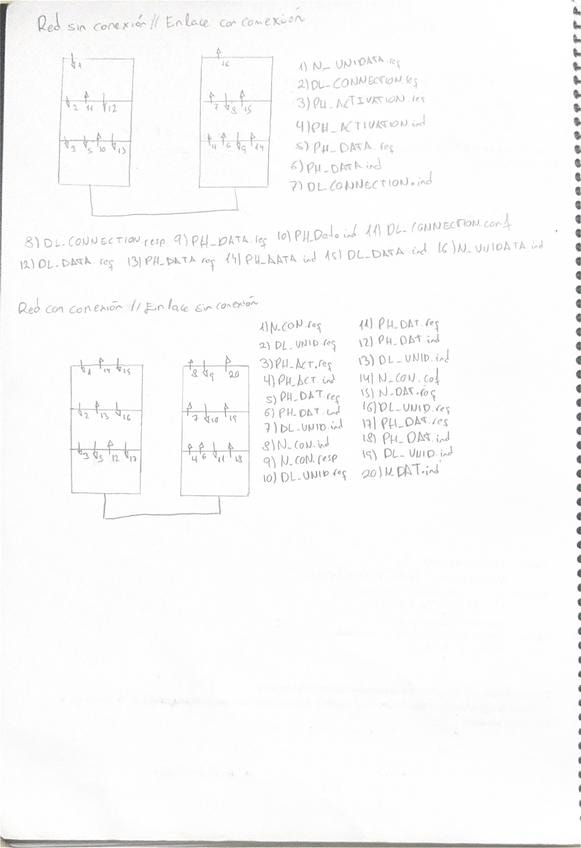 Red sin conexión // Enlace con conexión
1
16
2 11 12
7 8 15
3 5 10 13
4 6 9 14
1) N_UNIDATA.req
2) DL-CONNECTION.req
3) PH_ACTIVATION.req
4) PH_ACTIVATION.ind
5) PH_DATA.req
6) PH_DATA.ind
7) DL CONNECTION.ind
8) DL-CONNECTION.resp 9) PH_DATA.req 10) PH_Data.ind 11) DL-CONNECTION.conf
12) DL.DATA.req 13) PH_DATA req 14) PH_DATA ind 15) DL_DATA ind 16) N_UNIDATA ind
Red con conexión // Enlace sin conexión
1 14 15
8 9 20
2 13 16
7 10 19
3 5 12 17
4 6 11 18
1) N.CON.req
2) DL_UNID.req
3) PH_ACT.req
4) PH_ACT.ind
5) PH_DAT.req
6) PH_DAT.ind
7) DL-UNID.ind
8) N_CON.ind
9) N_CON.resp
10) DL_UNID.req
11) PH_DAT.req
12) PH_DAT.ind
13) DL_UNID.ind
14) N_CON.cof
15) N-DAT.req
16) DL-UNID.req
17) PH_DAT.req
18) PH_DAT.ind
19) DL_UNID.ind
20) N.DAT.ind